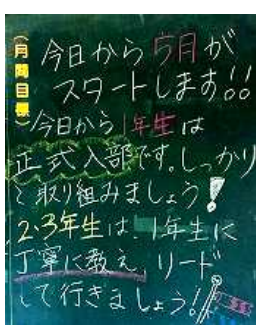 (月間目標)
今日から5月が
スタートします!!
今日から1年生は
正式入部です。しっかり
と取り組みましょう!
2・3年生は、1年生に
丁寧に教え、リード
して行きましょう!!